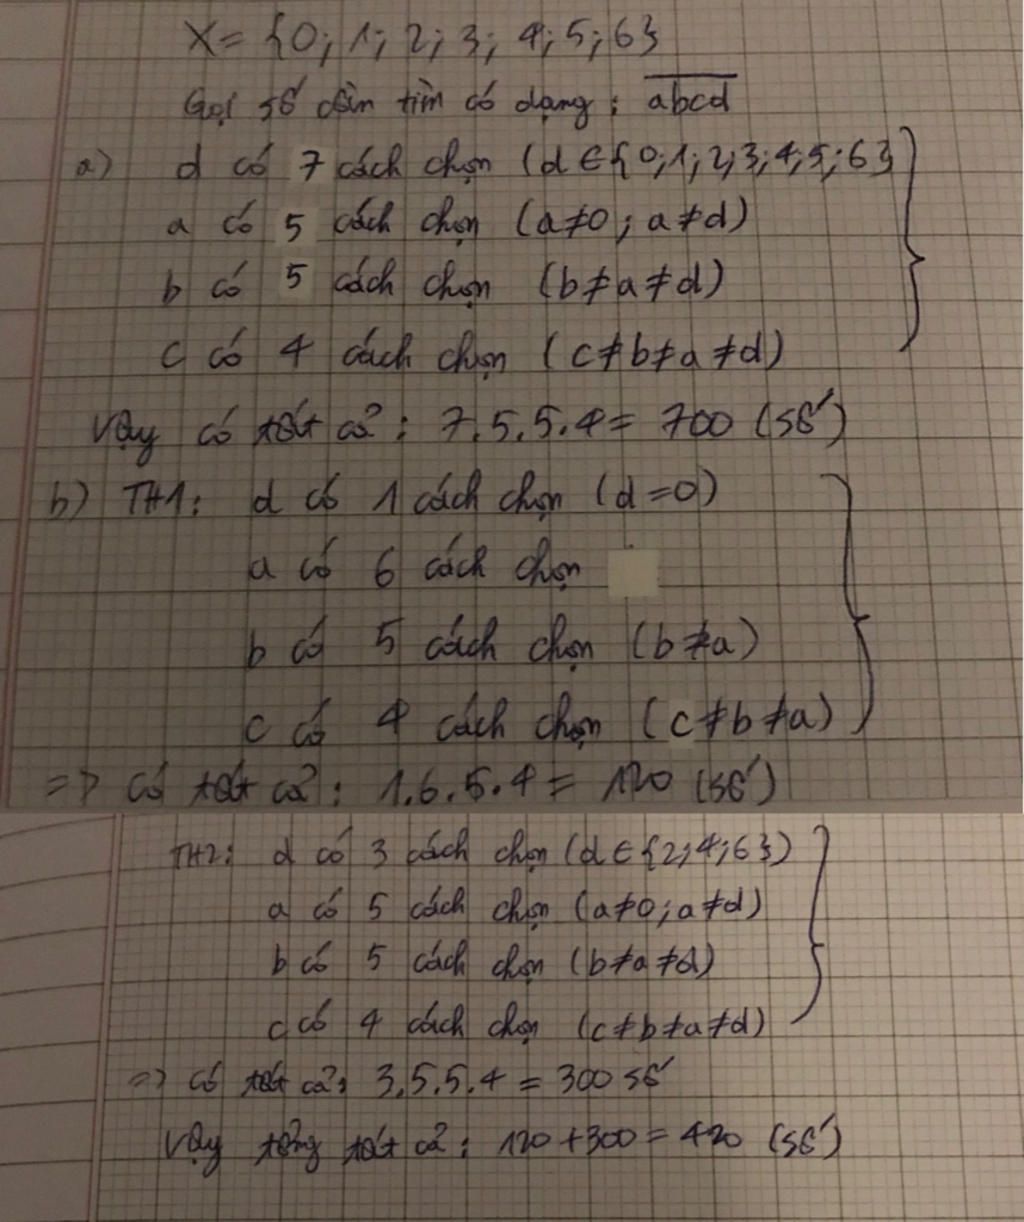 X = {0; 1; 2; 3; 4; 5; 6}
Gọi số cần tìm có dạng: abcd
a) d có 7 cách chọn (d ∈ {0;1;2;3;4;5;6}
a có 5 cách chọn (a≠0; a≠d)
b có 5 cách chọn (b≠a≠d)
c có 4 cách chọn (c≠b≠a≠d)
Vậy có tất cả: 7.5.5.4 = 700 (số)
b) TH1: d có 1 cách chọn (d=0)
a có 6 cách chọn
b có 5 cách chọn (b≠a)
c có 4 cách chọn (c≠b≠a)
=> có tất cả: 1.6.5.4 = 120 (số)
TH2: d có 3 cách chọn (d ∈ {2;4;6})
a có 5 cách chọn (a≠0; a≠d)
b có 5 cách chọn (b≠a≠d)
c có 4 cách chọn (c≠b≠a≠d)
=> có tất cả: 3.5.5.4 = 300 số
Vậy tổng tất cả: 120 + 300 = 420 (số)